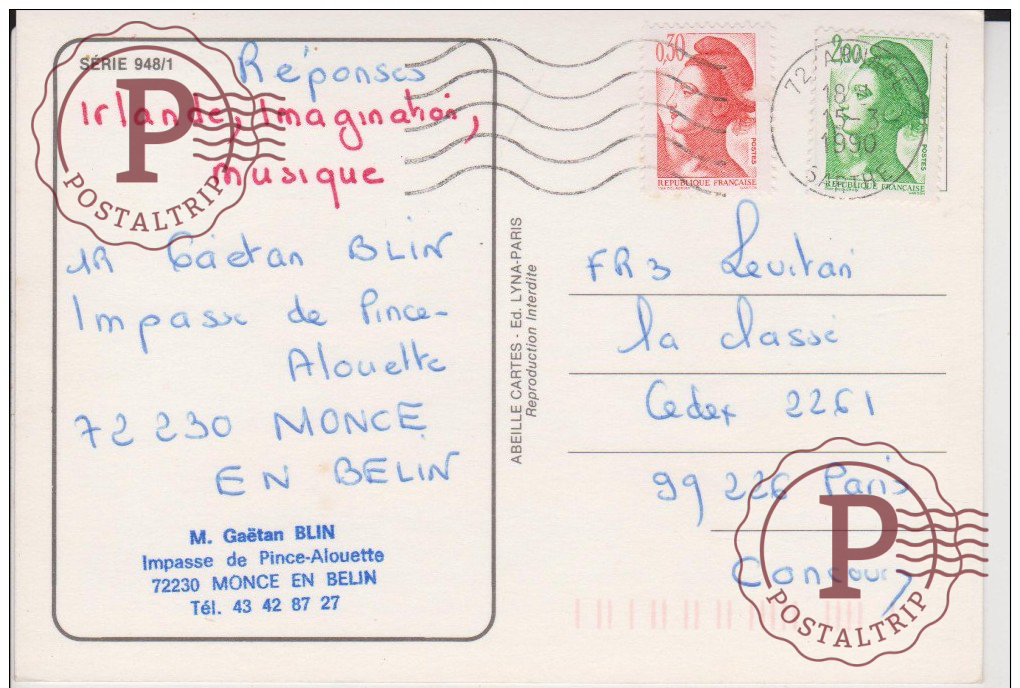 SÉRIE 948/1
Réponses
Irlande, Imagination,
Musique
P
POSTALTRIP
Gaëtan BLIN
Impasse de Pince-
Alouette
72 230 MONCE
EN BELIN
M. Gaëtan BLIN
Impasse de Pince-Alouette
72230 MONCE EN BELIN
Tél. 43 42 87 27
ABEILLE CARTES - Ed. LYNA-PARIS
Reproduction Interdite
0,30
POSTES
REPUBLIQUE FRANÇAISE
2,00
POSTES
REPUBLIQUE FRANÇAISE
72
15-3
1990
SARTHE
FR3 Levitan
la classe
Cedex 2261
99 226 Paris
Concours
P
POSTALTRIP